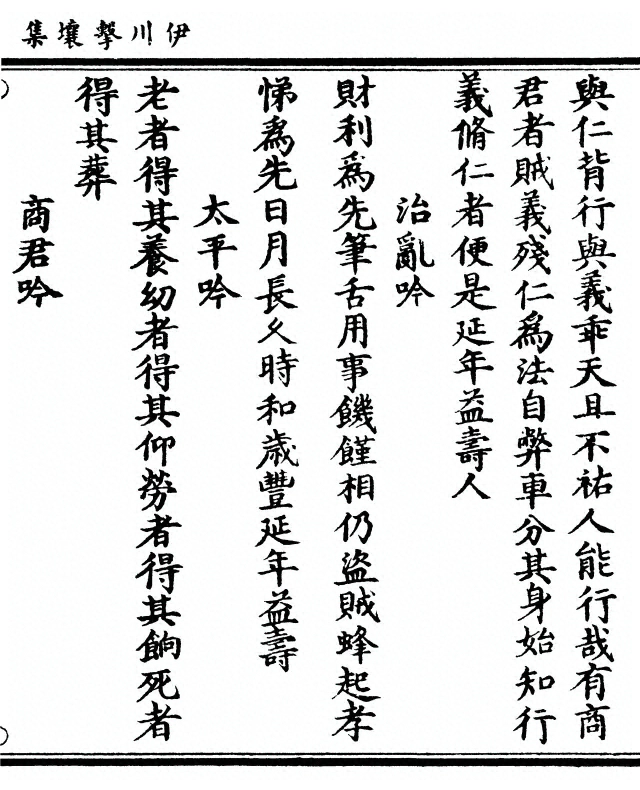 伊川擊壤集
與仁背行與義乖天且不祐人能行哉有商
君者賊義殘仁為法自弊車分其身始知行
義脩仁者便是延年益壽人
治亂吟
財利為先筆舌用事饑饉相仍盜賊蜂起孝
悌為先日月長久時和歲豐延年益壽
太平吟
老者得其養幼者得其仰勞者得其餉死者
得其葬
商君吟